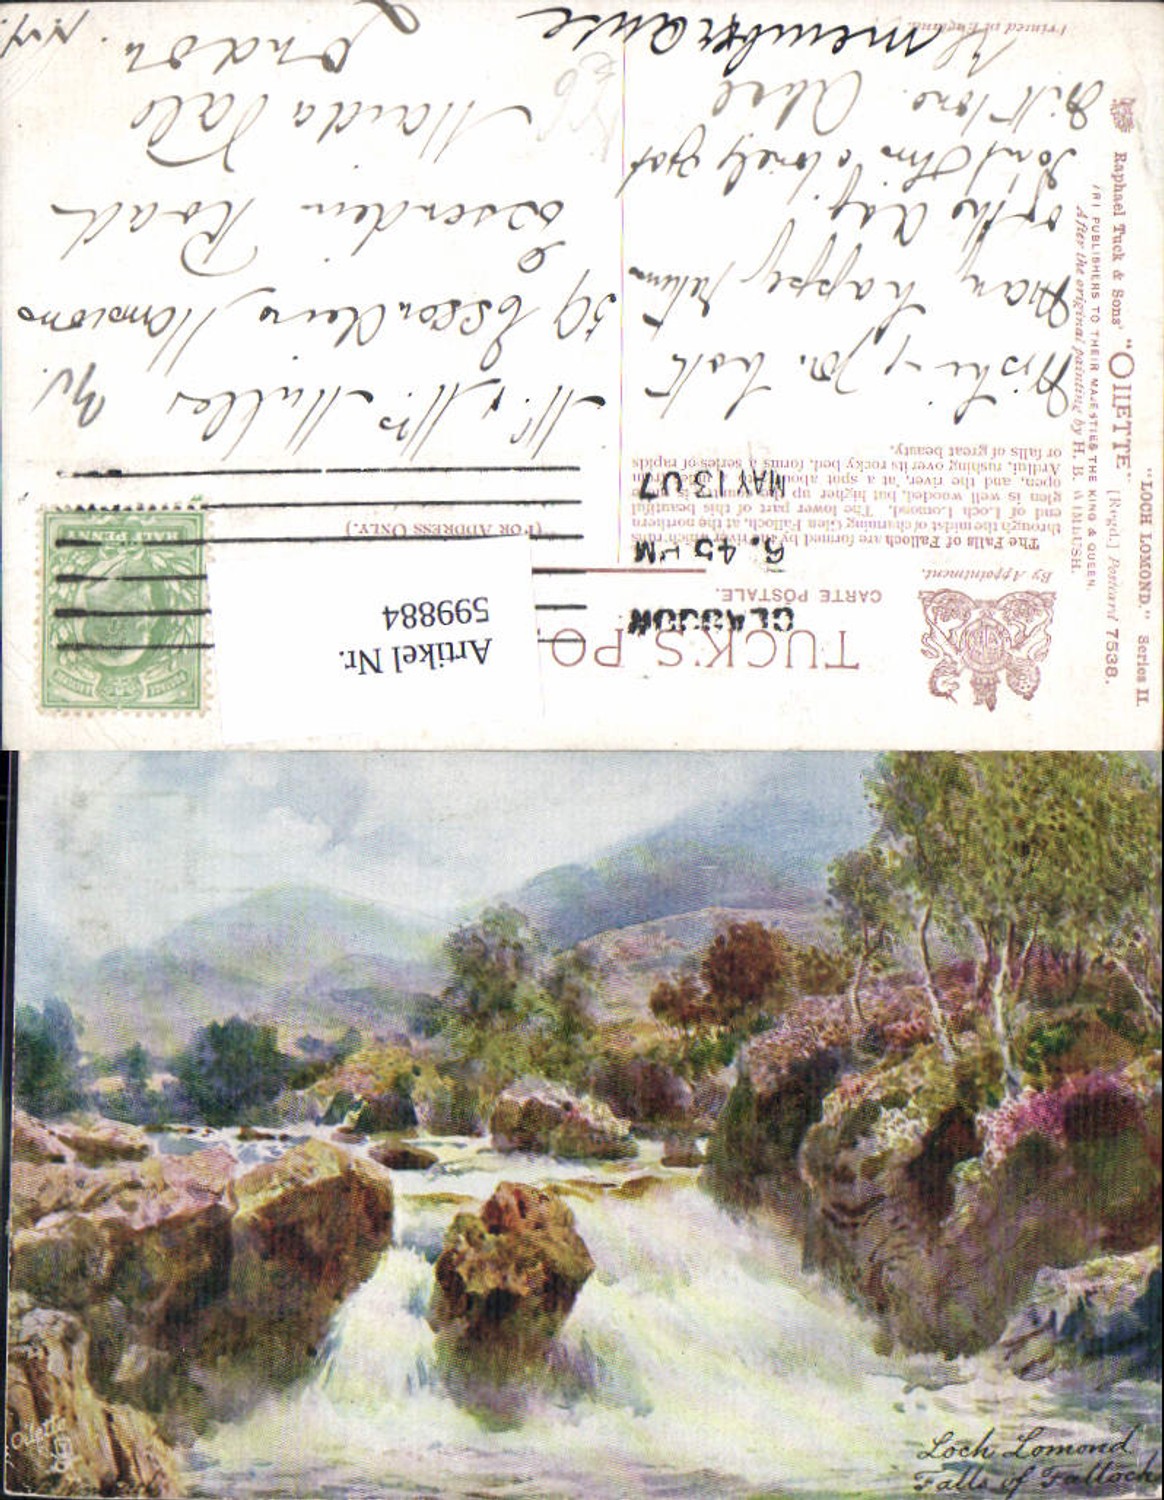 "LOCH LOMOND." Series II.
Raphael Tuck & Sons' "OILETTE" [Regd.] Postcard 7538.
PUBLISHERS TO THEIR MAJESTIES THE KING & QUEEN.
After the original painting by H. B. WIMBUSH.
TUCK'S PO
CARTE POSTALE.
By Appointment.
(FOR ADDRESS ONLY.)
The Falls of Falloch are formed by the river which runs
through the midst of charming Glen Falloch, at the northern
end of Loch Lomond. The lower part of this beautiful
glen is well wooded, but higher up the country is
open, and the river, at a spot about
Ardlui, rushing over its rocky bed, forms a series of rapids
or falls of great beauty.
GLASGOW
6.45 PM
MAY 13 07
HALF PENNY
Artikel Nr.
599884
Wishing you both
Many happy returns
of the day.
Don't this lovely
With love.
Mr & Mrs
59 Essendine Mansions
Essendine Road
Maida Vale
London. N.W.
Printed in England.
Loch Lomond
Falls of Falloch
"Oilette"